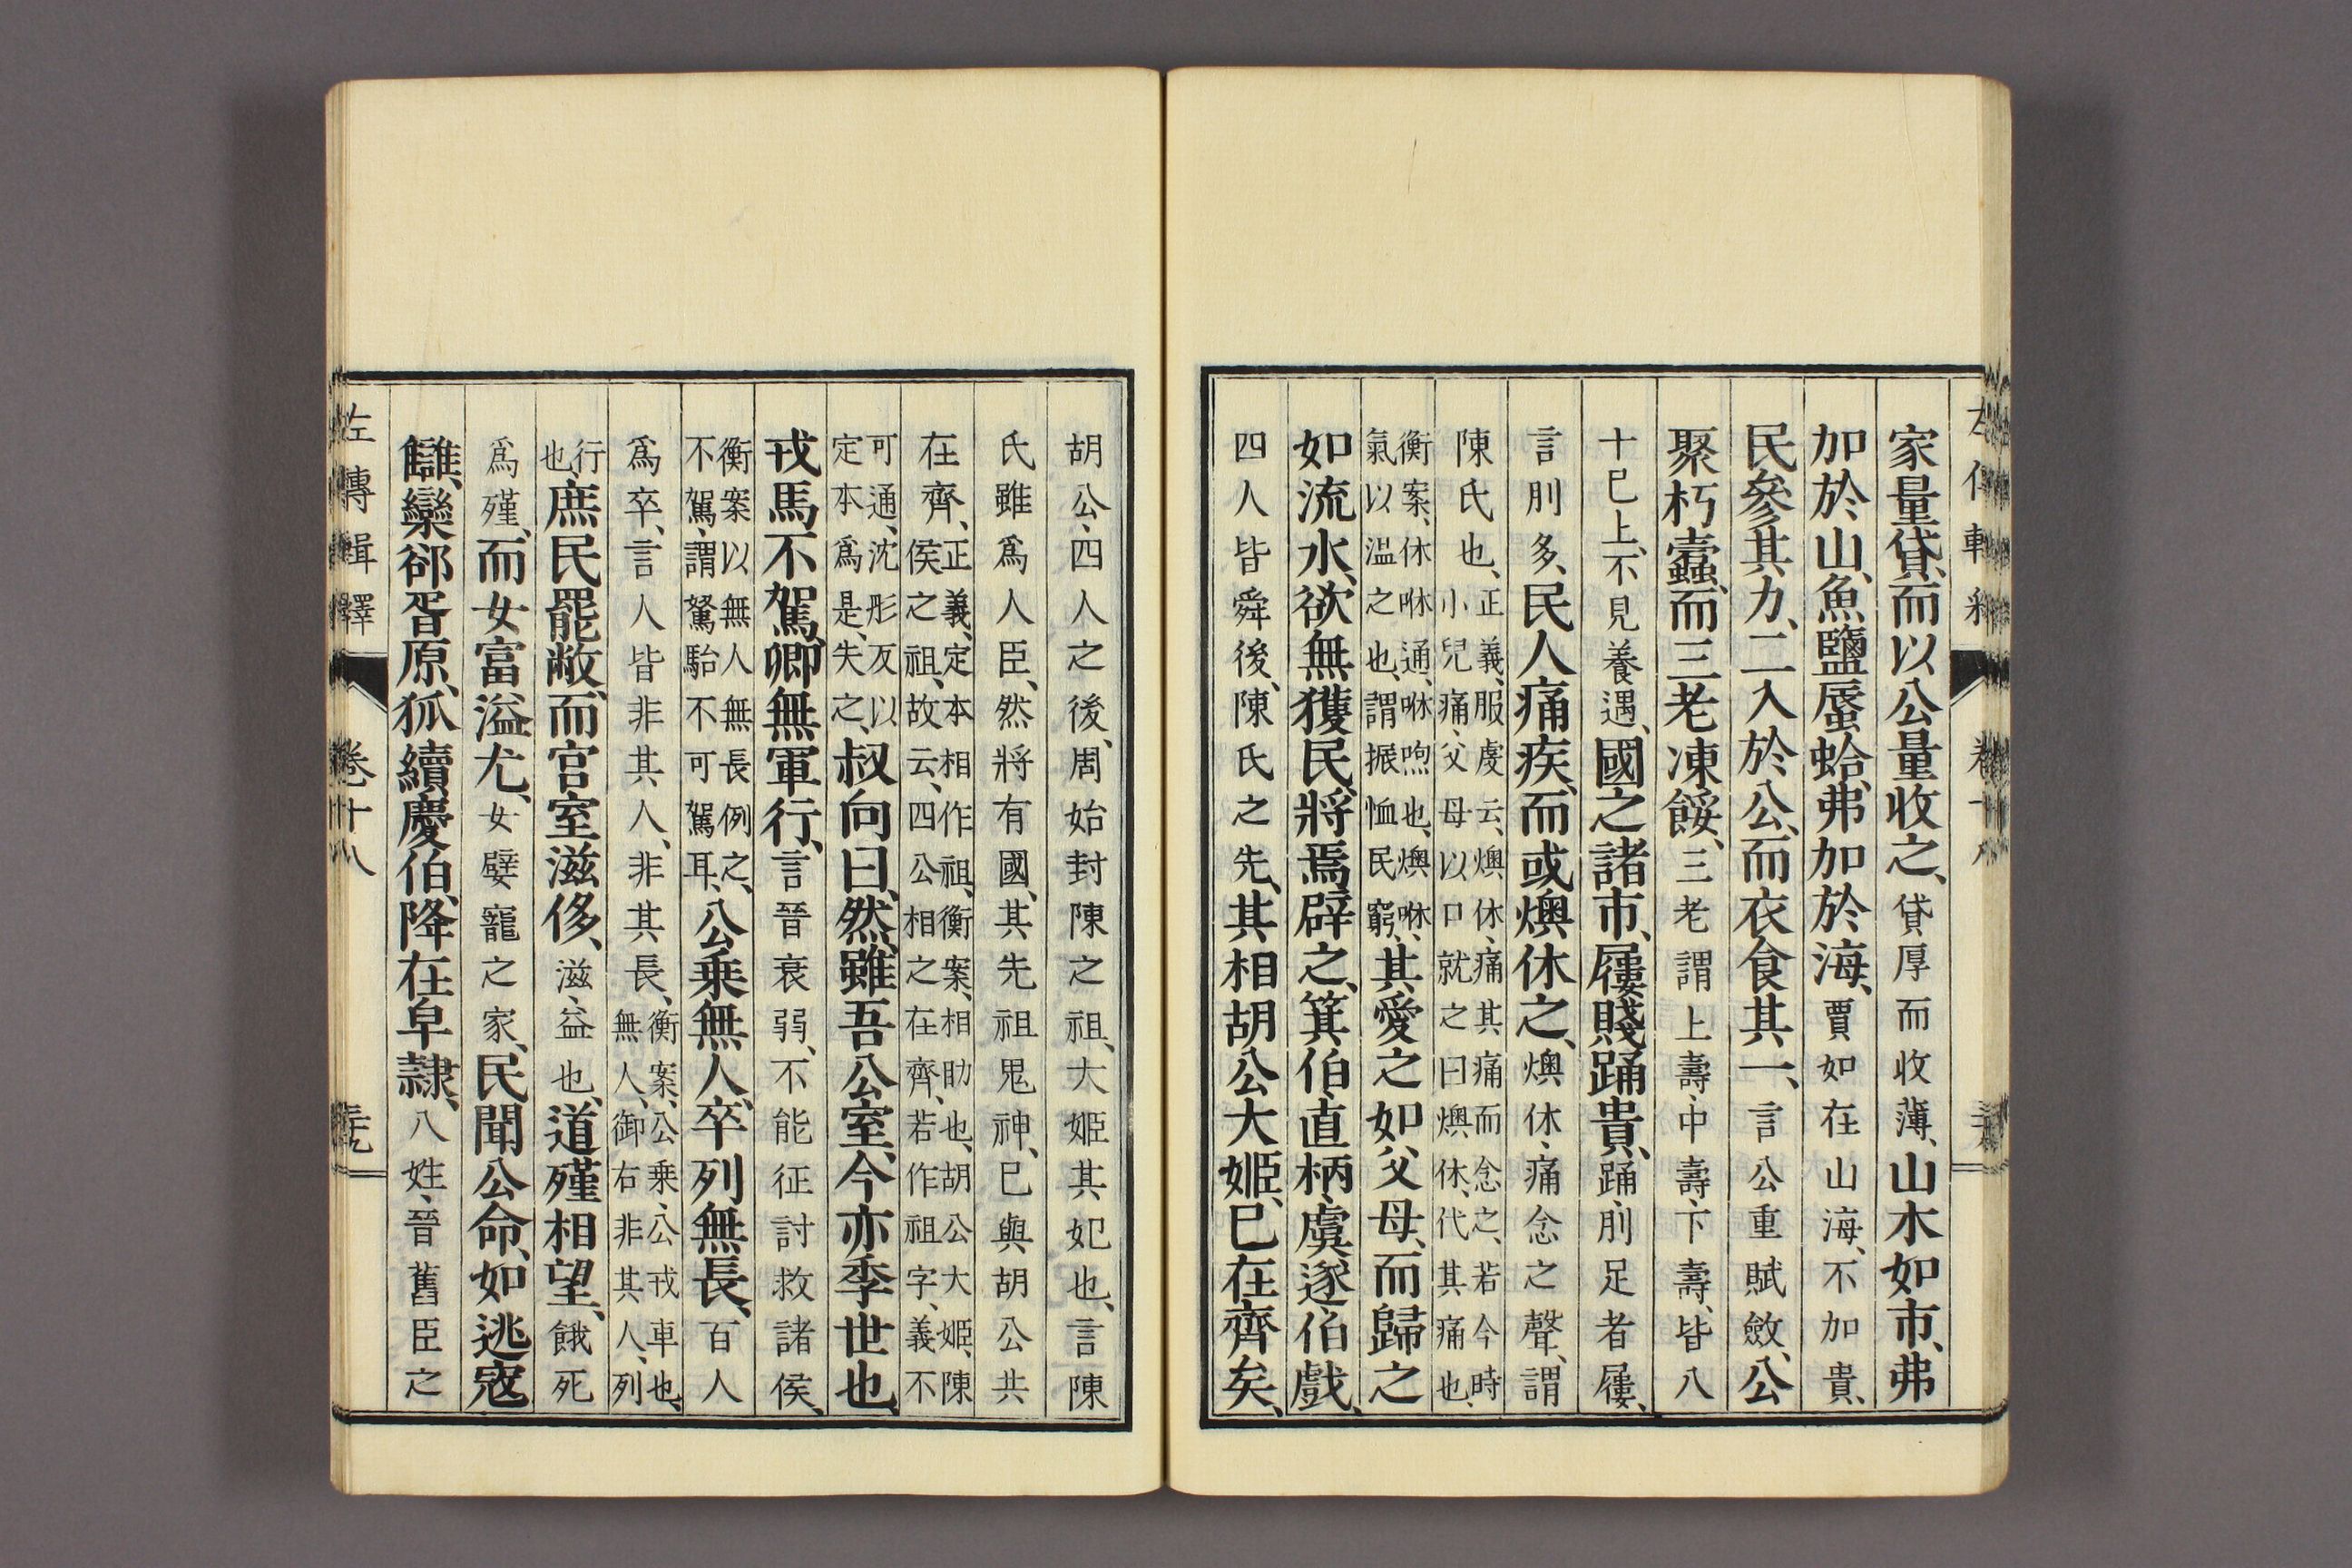 家量貸、而以公量收之、貸厚而收薄、山木如市、弗
加於山、魚鹽蜃蛤、弗加於海、賈如在山海、不加貴、
民參其力、二入於公、而衣食其一、言公重賦斂、公
聚朽蠹、而三老凍餒、三老謂上壽、中壽、下壽、皆八
十已上、不見養遇、國之諸市、屨賤踊貴、踊、刖足者屨、
言刖多、民人痛疾、而或燠休之、燠休、痛念之聲、謂
陳氏也、正義、服虔云、燠休、痛其痛而念之、若今時
小兒痛、父母以口就之曰燠休、代其痛也、
衡案、休咻通、咻喣也、燠咻、
氣以溫之也、謂振恤民窮、其愛之如父母、而歸之
如流水、欲無獲民、將焉辟之、箕伯、直柄、虞遂、伯戲、
四人皆舜後、陳氏之先、其相胡公大姬、已在齊矣、
胡公、四人之後、周始封陳之祖、大姬其妃也、言陳
氏雖爲人臣、然將有國、其先祖鬼神、已與胡公共
在齊、正義、定本相作祖、衡案、相助也、胡公大姬、陳
侯之祖、故云、四公相之在齊、若作祖字、義不
可通、沈彤反以
定本爲是、失之、叔向曰、然、雖吾公室、今亦季世也、
戎馬不駕、卿無軍行、言晉衰弱、不能征討救諸侯、
衡案以無人無長例之、
不駕、謂駑駘不可駕耳、公乘無人、卒列無長、百人
爲卒、言人皆非其人、非其長、衡案、公乘、公戎車也、
無人、御右非其人、列
行
也、庶民罷敝、而宮室滋侈、滋、益也、道殣相望、餓死
爲殣、而女富溢尤、女嬖寵之家、民聞公命、如逃寇
讎、欒郤胥原、狐續慶伯、降在皁隸、八姓、晉舊臣之
左傳輯釋 卷十八